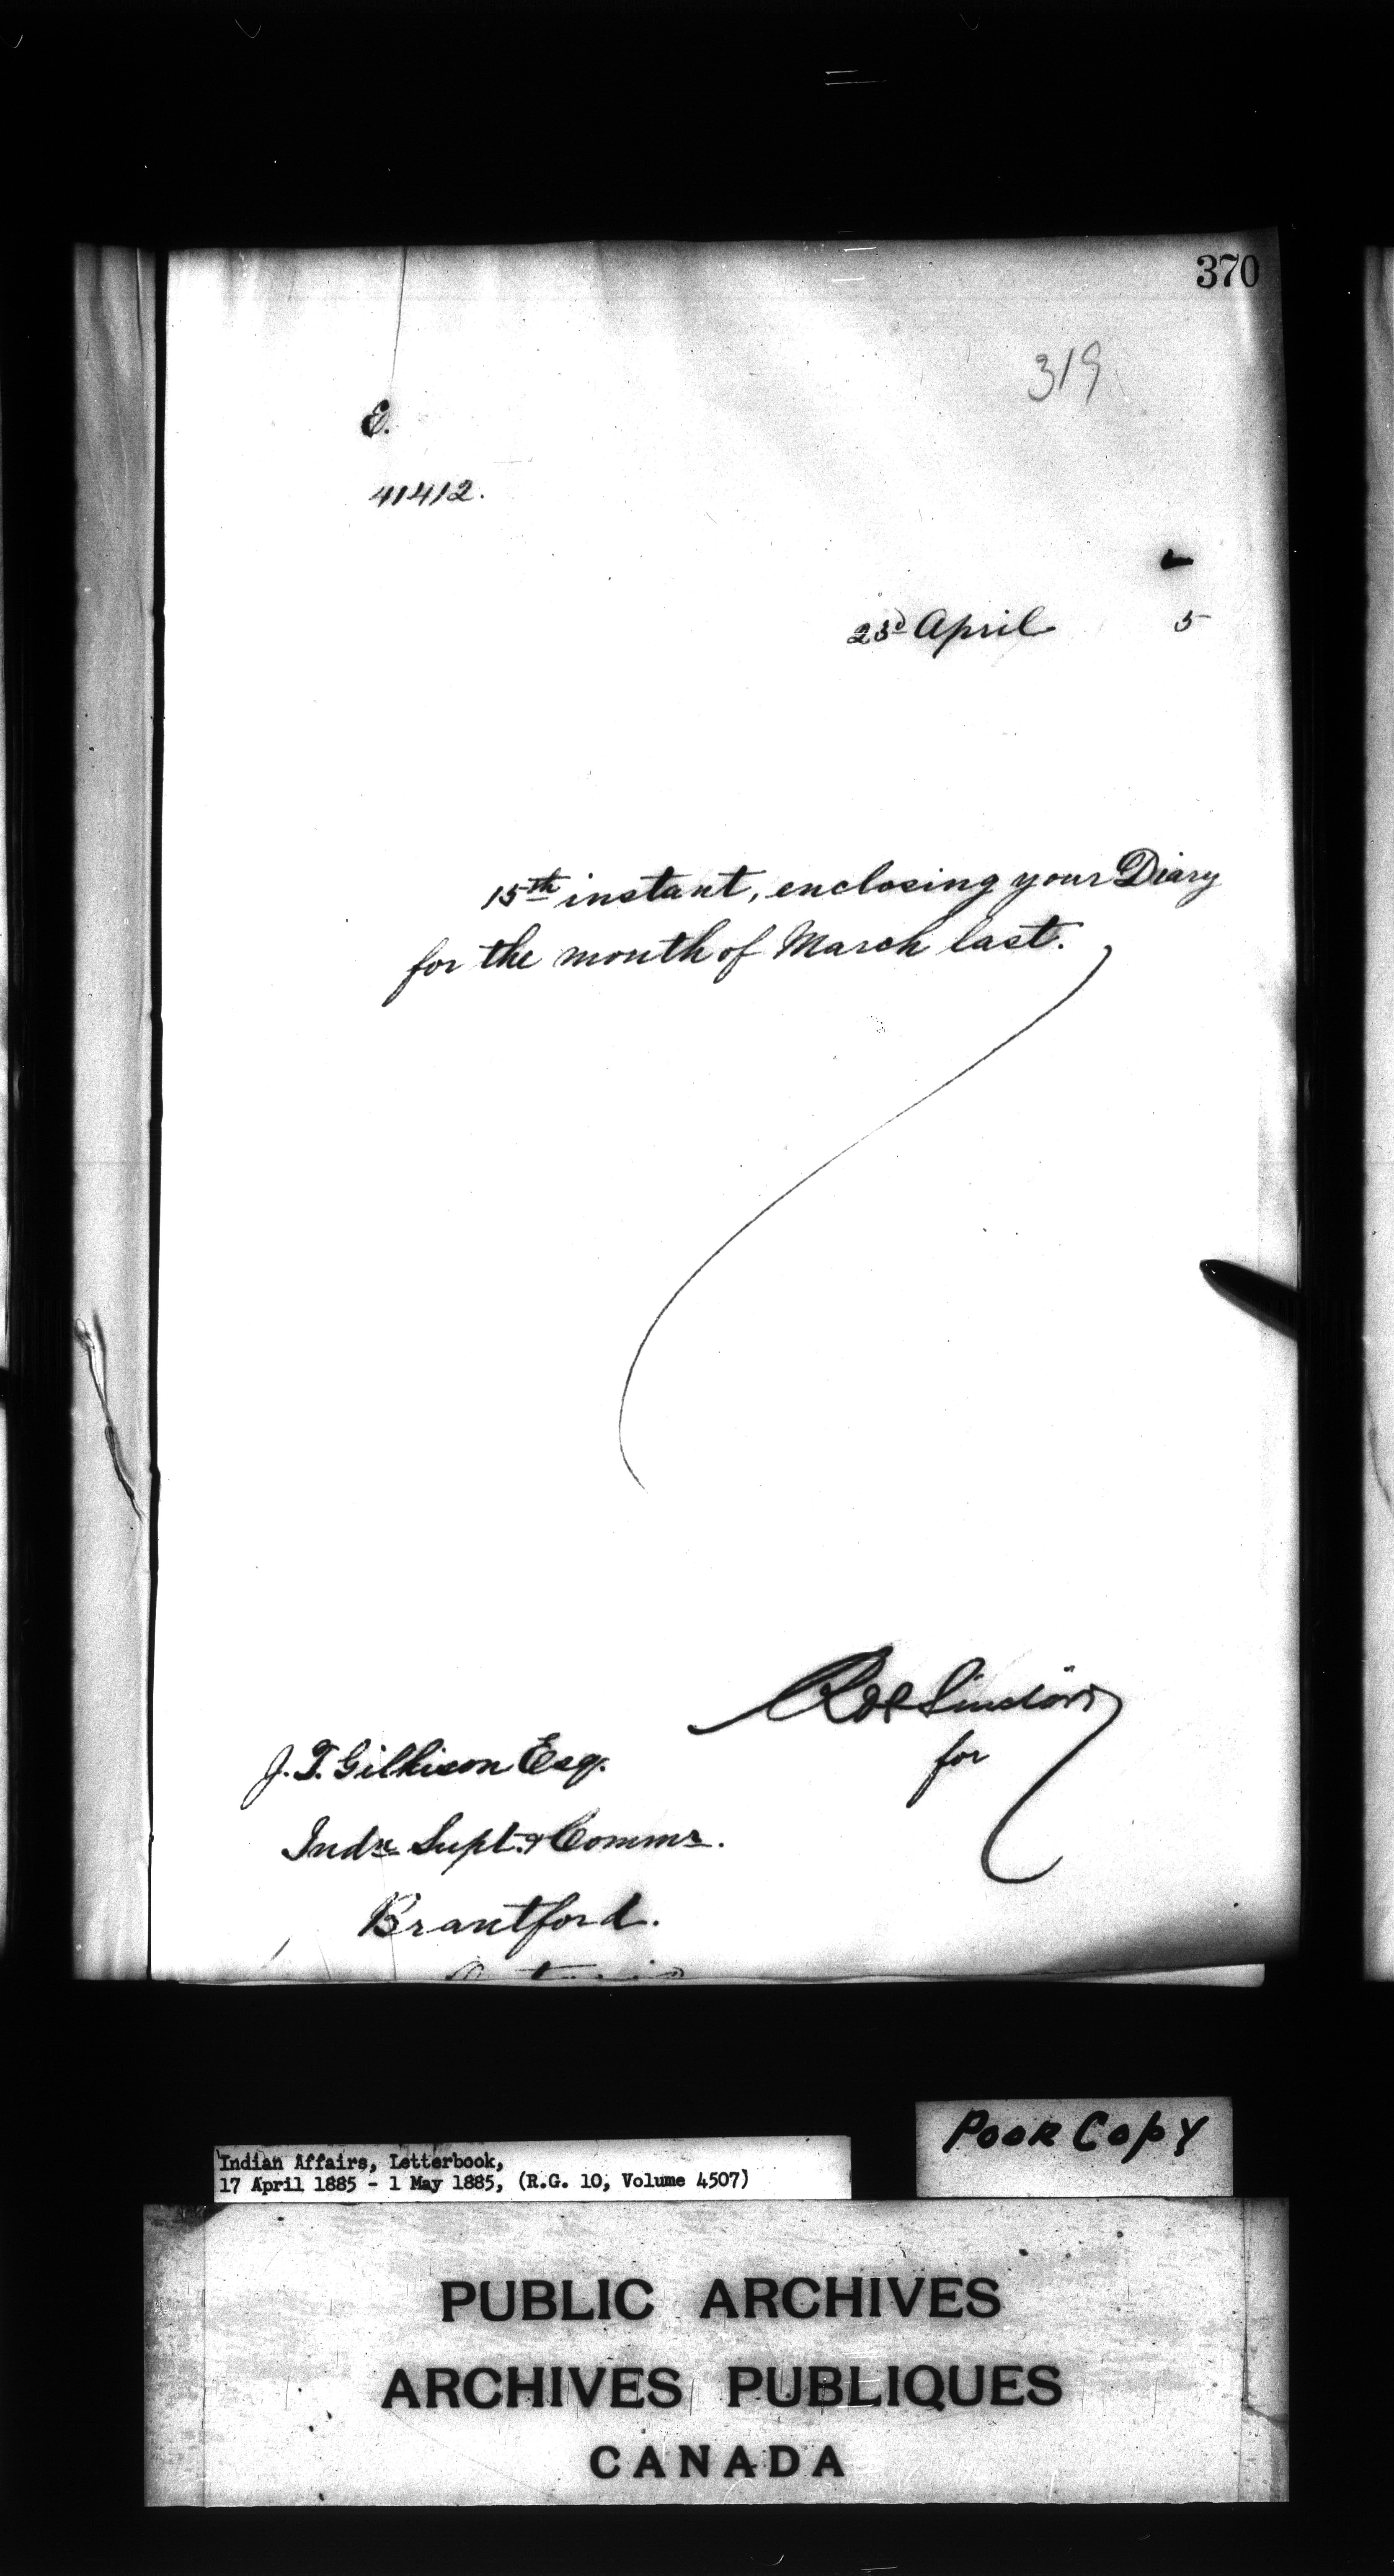 370
319
E.
41412.
23d April 5
15th instant, enclosing your Diary
for the month of March last.
Sinclair
for
J. T. Gilkison Esq.
Indn Supt. & Commr.
Brantford.
Ontario
Poor Copy
Indian Affairs, Letterbook,
17 April 1885 - 1 May 1885, (R.G. 10, Volume 4507)
PUBLIC ARCHIVES
ARCHIVES PUBLIQUES
CANADA